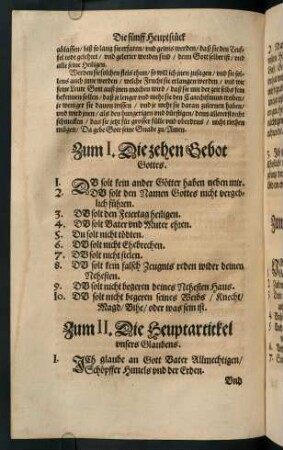 Die fünff Heuptstück
ablassen / biß so lang sie erfaren / vnd gewis werden / daß sie den Teuf-
fel tode geleret / vnd gelerter worden sind / denn Gott selber ist / vnd
alle seine Heiligen.
Werden sie solchen fleis thun / so wil ich inen zusagen / vnd sie sol-
lens auch inne werden / welche Frucht sie erlangen werden / vnd wie
feine Leute Gott auß inen machen wird / daß sie mit der zeit selbs fein
bekennen sollen / daß je lenger vnd mehr sie den Catechismum treiben /
je weniger sie dauon wissen / vnd je mehr sie daran zu lernen haben /
vnd wird jnen / als den hungerigen vnd dürstigen / denn allererst recht
schmecken / das sie jetzt für grosser fülle vnd vberdrus / nicht riechen
mügen / Da gebe Gott seine Gnade zu / Amen.
Zum I. Die zehen Gebot
Gottes.
1. DV solt kein ander Götter haben neben mir.
2. DV solt den Namen Gottes nicht vergeb-
lich führen.
3. DV solt den Feiertag heiligen.
4. DV solt Vater vnd Muter ehren.
5. Du solt nicht tödten.
6. DV solt nicht Ehebrechen.
7. DV solt nicht stelen.
8. DV solt kein falsch Zeugnis reden wider deinen
Nehesten.
9. DV solt nicht begeren deines Nehesten Haus.
10. DV solt nicht begeren seines Weibs / Knecht /
Magd / Vihe / oder was sein ist.
Zum II. Die Heuptartickel
vnsers Glaubens.
1. ICh glaube an Gott Vater Allmechtigen /
Schöpffer Himels vnd der Erden.
Vnd